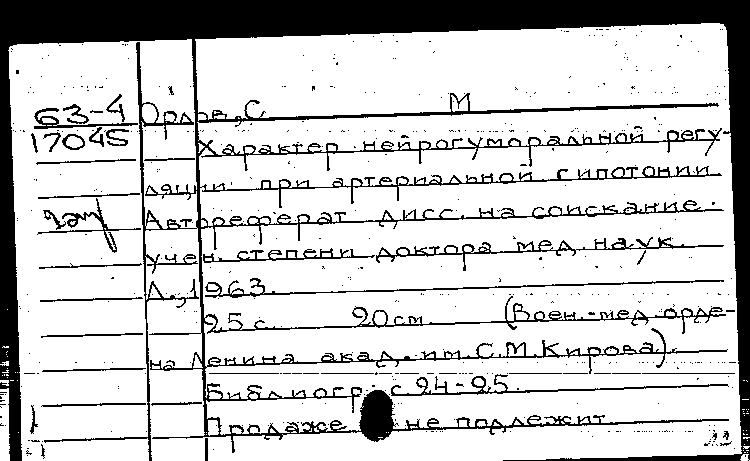 63-4 Орлов, С. М
17045
Характер нейрогуморальной регу-
ляции при артериальной гипотонии
Автореферат дисс. на соискание
учен. степени доктора мед. наук.
Л., 1963.
25 с. 20 см. (Воен.-мед. орде-
на Ленина акад. им. С.М. Кирова).
Библиогр.: с. 24-25.
Продаже не подлежит